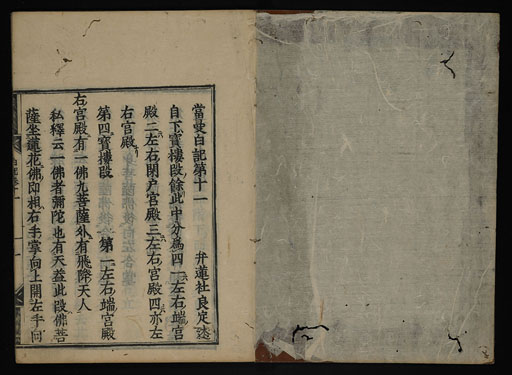 當曼白記第十一
弁蓮社良定述
自下寳樓段餘此中分爲四一左右端宮
殿二左右閉戸宮殿三左右宮殿四亦左
右宮殿
第四寳樓段　第一左右端宮殿
右宮殿有一佛九菩薩外有飛降天人
私釋云一佛者彌陀也有天蓋此段佛菩
薩坐蓮花佛印相右手掌向上開左手向